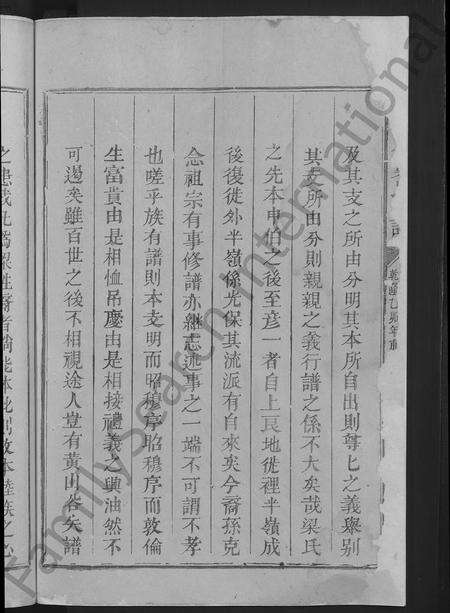 及其支之所由分明其本所自出則尊匕之義舉别
其支所由分則親親之義行譜之係不大矣哉梁氏
之先本申伯之後至彦一者自上艮地徙裡半嶺成
後復徙外半嶺係光保其流派有自來矣今裔孫克
念祖宗有事修譜亦継志述事之一端不可謂不孝
也嗟乎族有譜則本支明而昭穆序昭穆序而敦倫
生富貴由是相恤吊慶由是相接禮義之與油然不
可遏矣雖百世之後不相視途人豈有黄山谷矣譜
乾隆乙卯年重
FamilySearch International